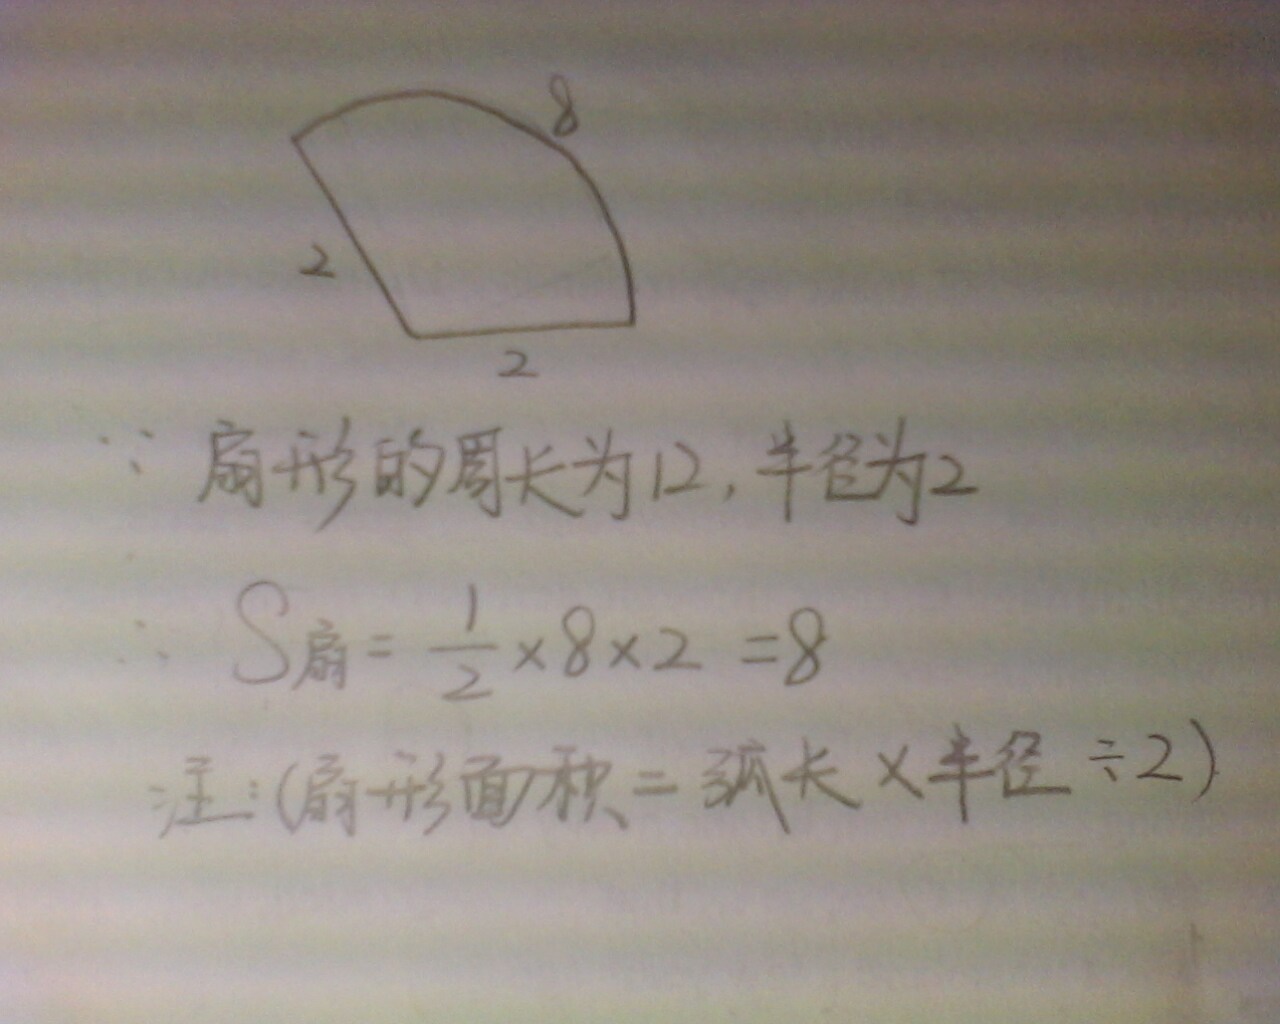 8
2
2
∵ 扇形的周长为12,半径为2
∴ S扇 = 1/2 × 8 × 2 = 8
注:(扇形面积 = 弧长 × 半径 ÷ 2)